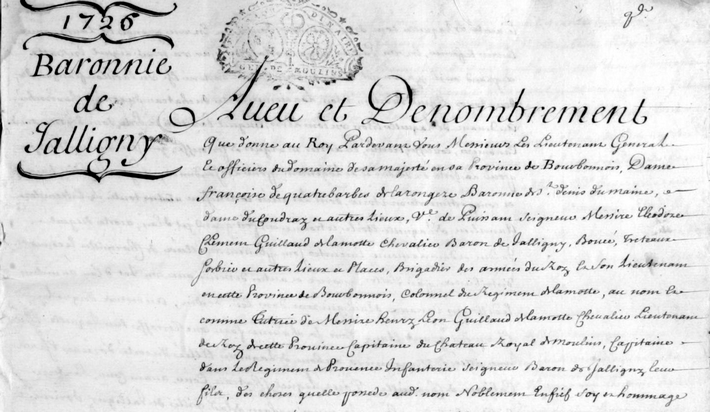 1726
Baronnie
de
Jalligny
Aueu et Denombrement
Que donne au Roy Pardevant Vous Messieurs Les Lieutenant General
Et officiers du domaine de sa majesté en sa Province de Bourbonnois, Dame
françoise de quatrebarbes de la rongere Baronne de St. denis du maine, et
dame du Coudray et autres Lieux, Ve. de Puissant Seigneur Messire Theodore
Clement Guillaud de la motte Chevalier Baron de Jalligny, Boucé, Treteaux
et autres Lieux et Places, Brigadier des armées du Roy et Son Lieutenant
en cette Province de Bourbonnois, Colonel du Regiment de la motte, au nom et
comme tutrice de Messire henry Leon Guillaud de la motte Chevalier Lieutenant
de Roy de cette Province Capitaine du Chateau Royal de moulins, Capitaine
dans Le Regiment de Provence Infanterie Seigneur Baron de Jalligny leur
fils, des choses quelle possede aud. nom Noblement En fief foy et hommage